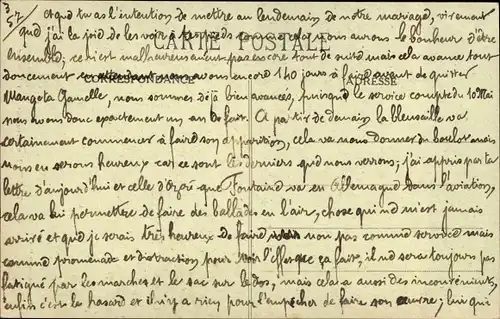 3/57
et que tu as l'intention de mettre au lendemain de notre mariage, vivement
que j'ai la joie de les voir à tes pieds comme cela nous aurons le bonheur d'être
CARTE POSTALE
ensemble; ceci est malheureusement pas encore tout de suite mais cela avance tout
doucement en attendant nous avons encore 140 jours à faire avant de quitter
CORRESPONDANCE
ADRESSE
Gamelle, nous sommes déjà bien avancés, puisque le service compte du 10 Mai
nous avons donc exactement un an de fait. A partir de demain la bleusaille va
certainement commencer à faire son apparition, cela va nous donner du boulot mais
nous en serons heureux car ce sont les derniers que nous verrons; j'ai appris par ta
lettre d'aujourd'hui et celle d' que Fontaine va en Allemagne dans l'aviation,
cela va lui permettre de faire des ballades en l'air, chose qui ne m'est jamais
arrivé et que je serais très heureux de faire non pas comme service mais
comme promenade et distraction pour voir l'effet que ça fait, il ne sera toujours pas
fatigué par les marches et le sac sur le dos, mais cela a aussi des inconvénients,
enfin c'est le hasard et il n'y a rien pour l'empêcher de faire son œuvre; lui qui